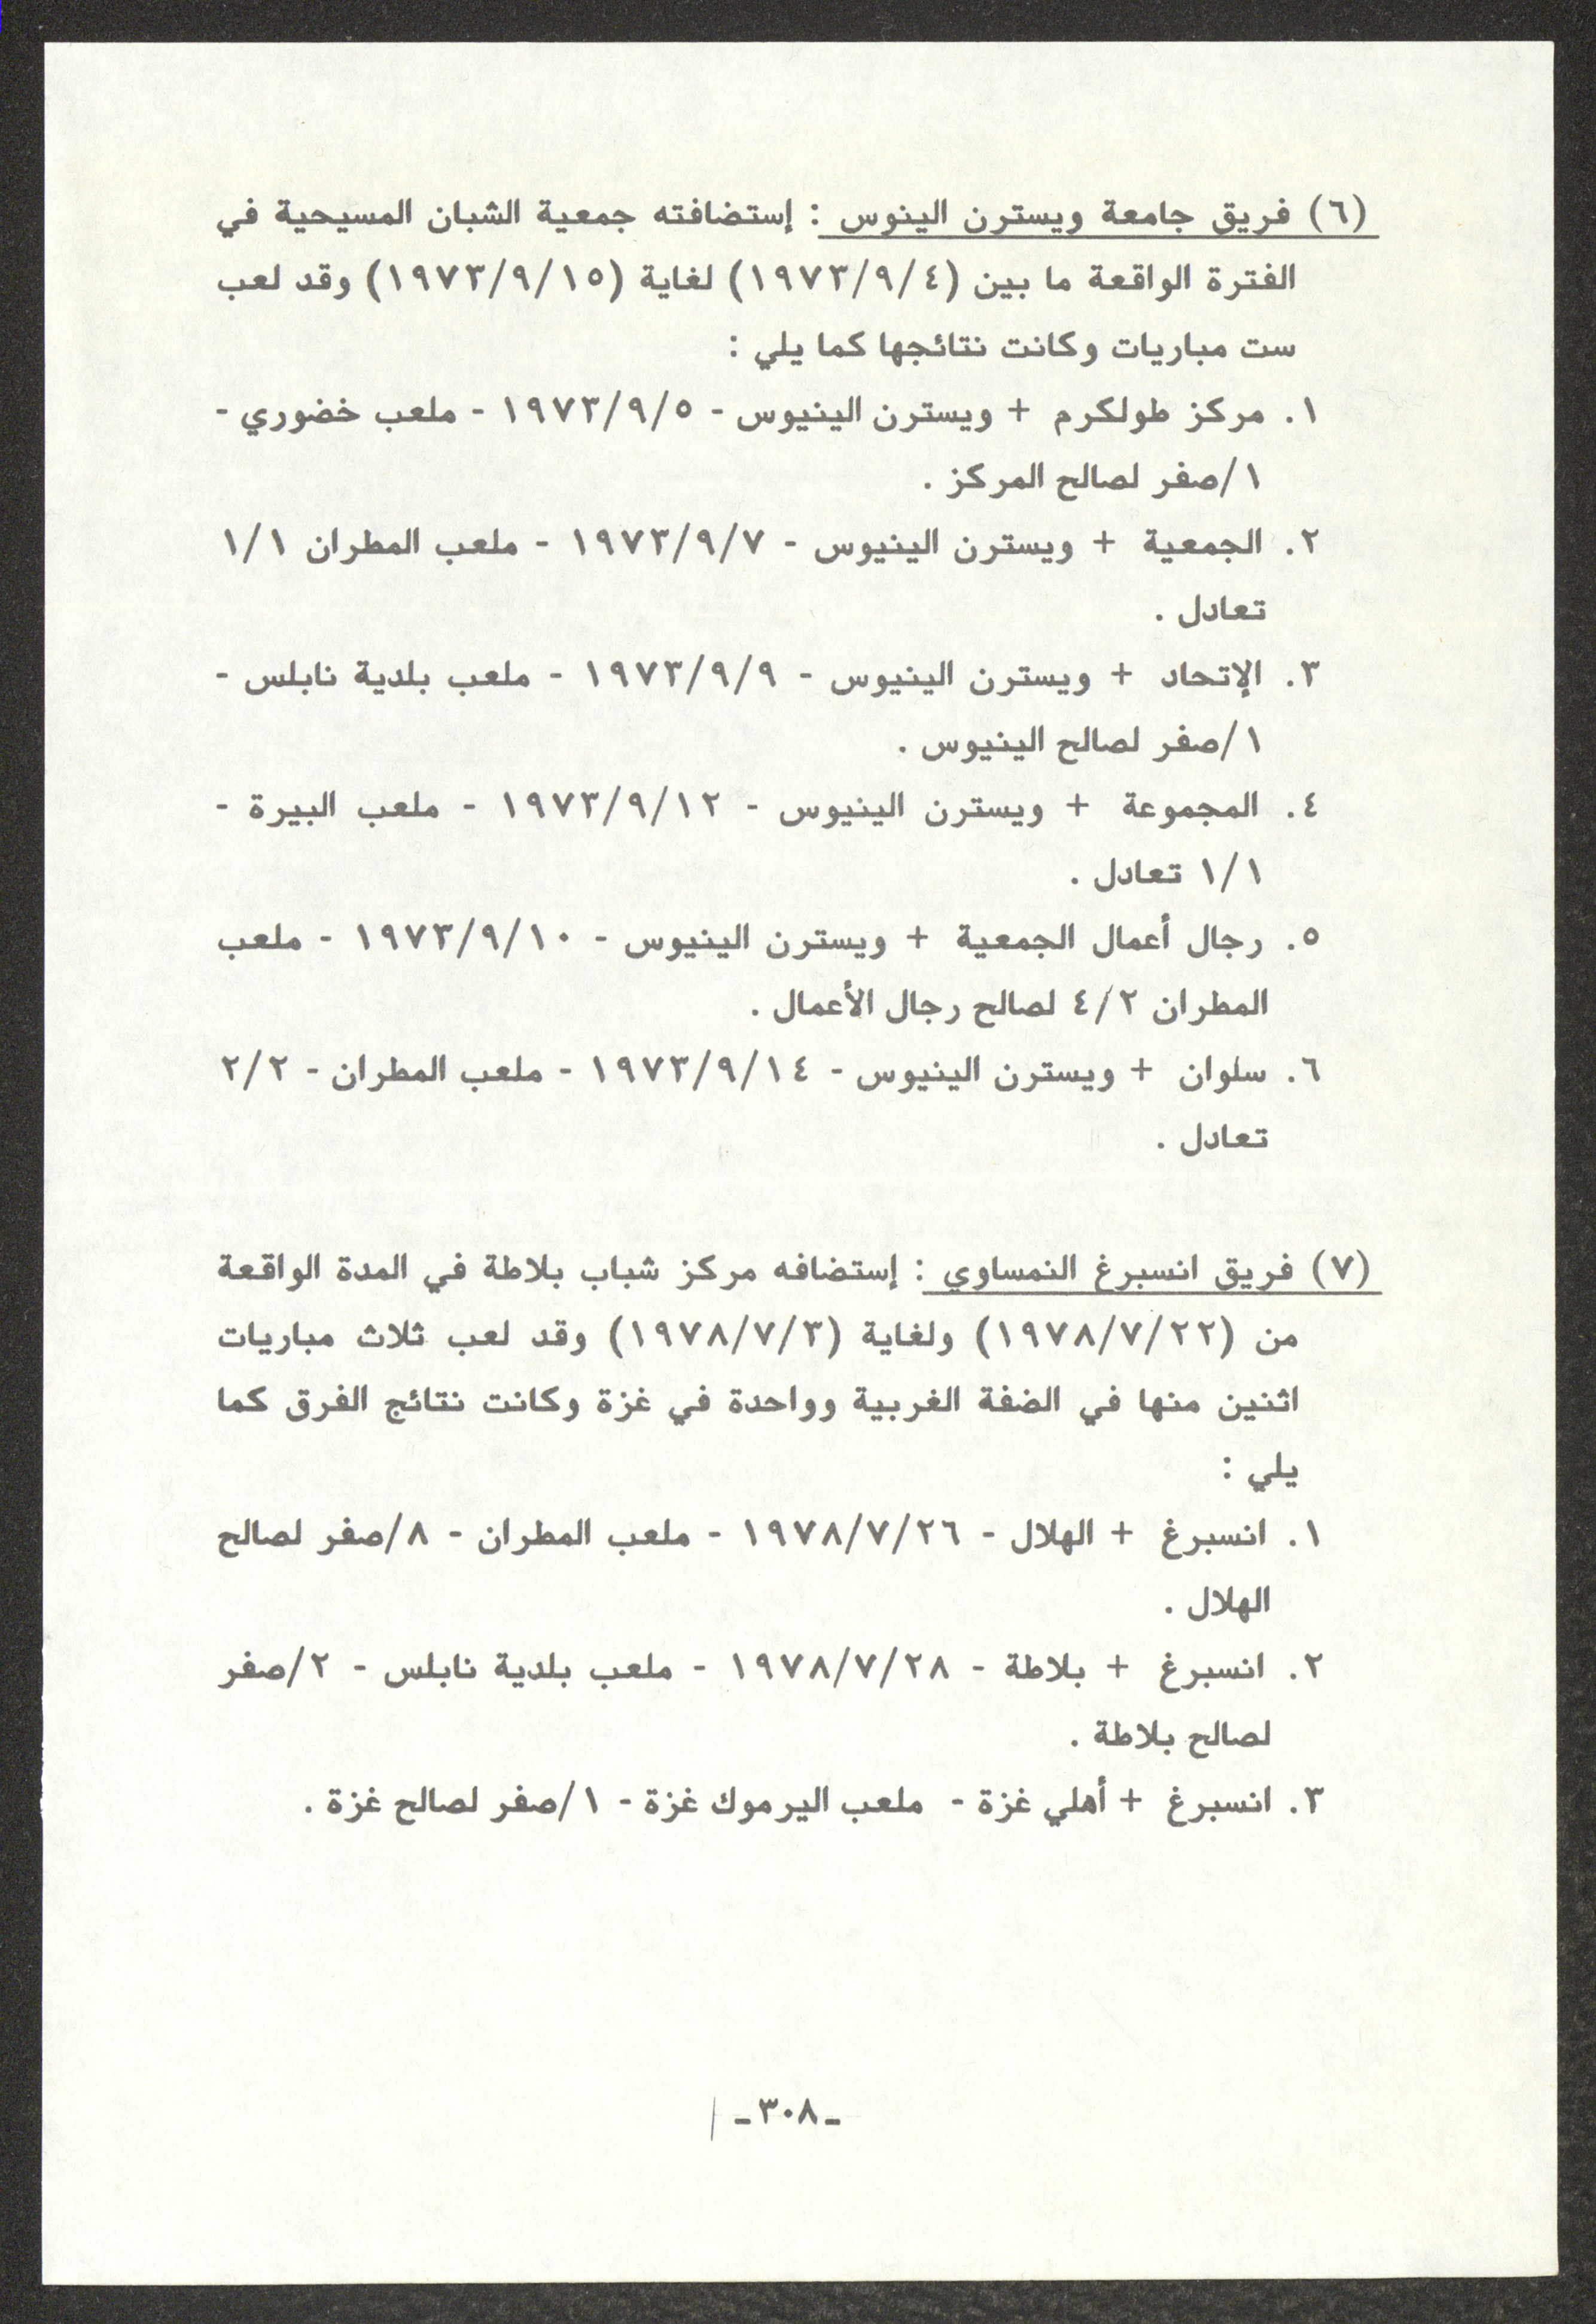 (٦) فريق جامعة ويسترن الينوس : إستضافته جمعية الشبان المسيحية في
الفترة الواقعة ما بين (١٩٧٣/٩/٤) لغاية (١٩٧٣/٩/١٥) وقد لعب
ست مباريات وكانت نتائجها كما يلي :
١. مركز طولكرم + ويسترن الينيوس - ١٩٧٣/٩/٥ - ملعب خضوري -
١/صفر لصالح المركز .
٢. الجمعية + ويسترن الينيوس - ١٩٧٣/٩/٧ - ملعب المطران ١/١
تعادل .
٣. الإتحاد + ويسترن الينيوس - ١٩٧٣/٩/٩ - ملعب بلدية نابلس -
١/صفر لصالح الينيوس .
٤. المجموعة + ويسترن الينيوس - ١٩٧٣/٩/١٢ - ملعب البيرة -
١/١ تعادل .
٥. رجال أعمال الجمعية + ويسترن الينيوس - ١٩٧٣/٩/١٠ - ملعب
المطران ٤/٢ لصالح رجال الأعمال .
٦. سلوان + ويسترن الينيوس - ١٩٧٣/٩/١٤ - ملعب المطران - ٢/٢
تعادل .
(٧) فريق انسبرغ النمساوي : إستضافه مركز شباب بلاطة في المدة الواقعة
من (١٩٧٨/٧/٢٢) ولغاية (١٩٧٨/٧/٣) وقد لعب ثلاث مباريات
اثنين منها في الضفة الغربية وواحدة في غزة وكانت نتائج الفرق كما
يلي :
١. انسبرغ + الهلال - ١٩٧٨/٧/٢٦ - ملعب المطران - ٨/صفر لصالح
الهلال .
٢. انسبرغ + بلاطة - ١٩٧٨/٧/٢٨ - ملعب بلدية نابلس - ٢/صفر
لصالح بلاطة .
٣. انسبرغ + أهلي غزة - ملعب اليرموك غزة - ١/صفر لصالح غزة .
-٣٠٨-